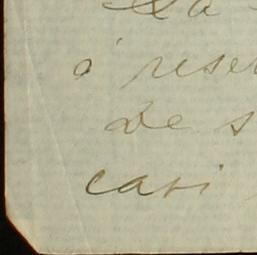 á reser
de s
casi